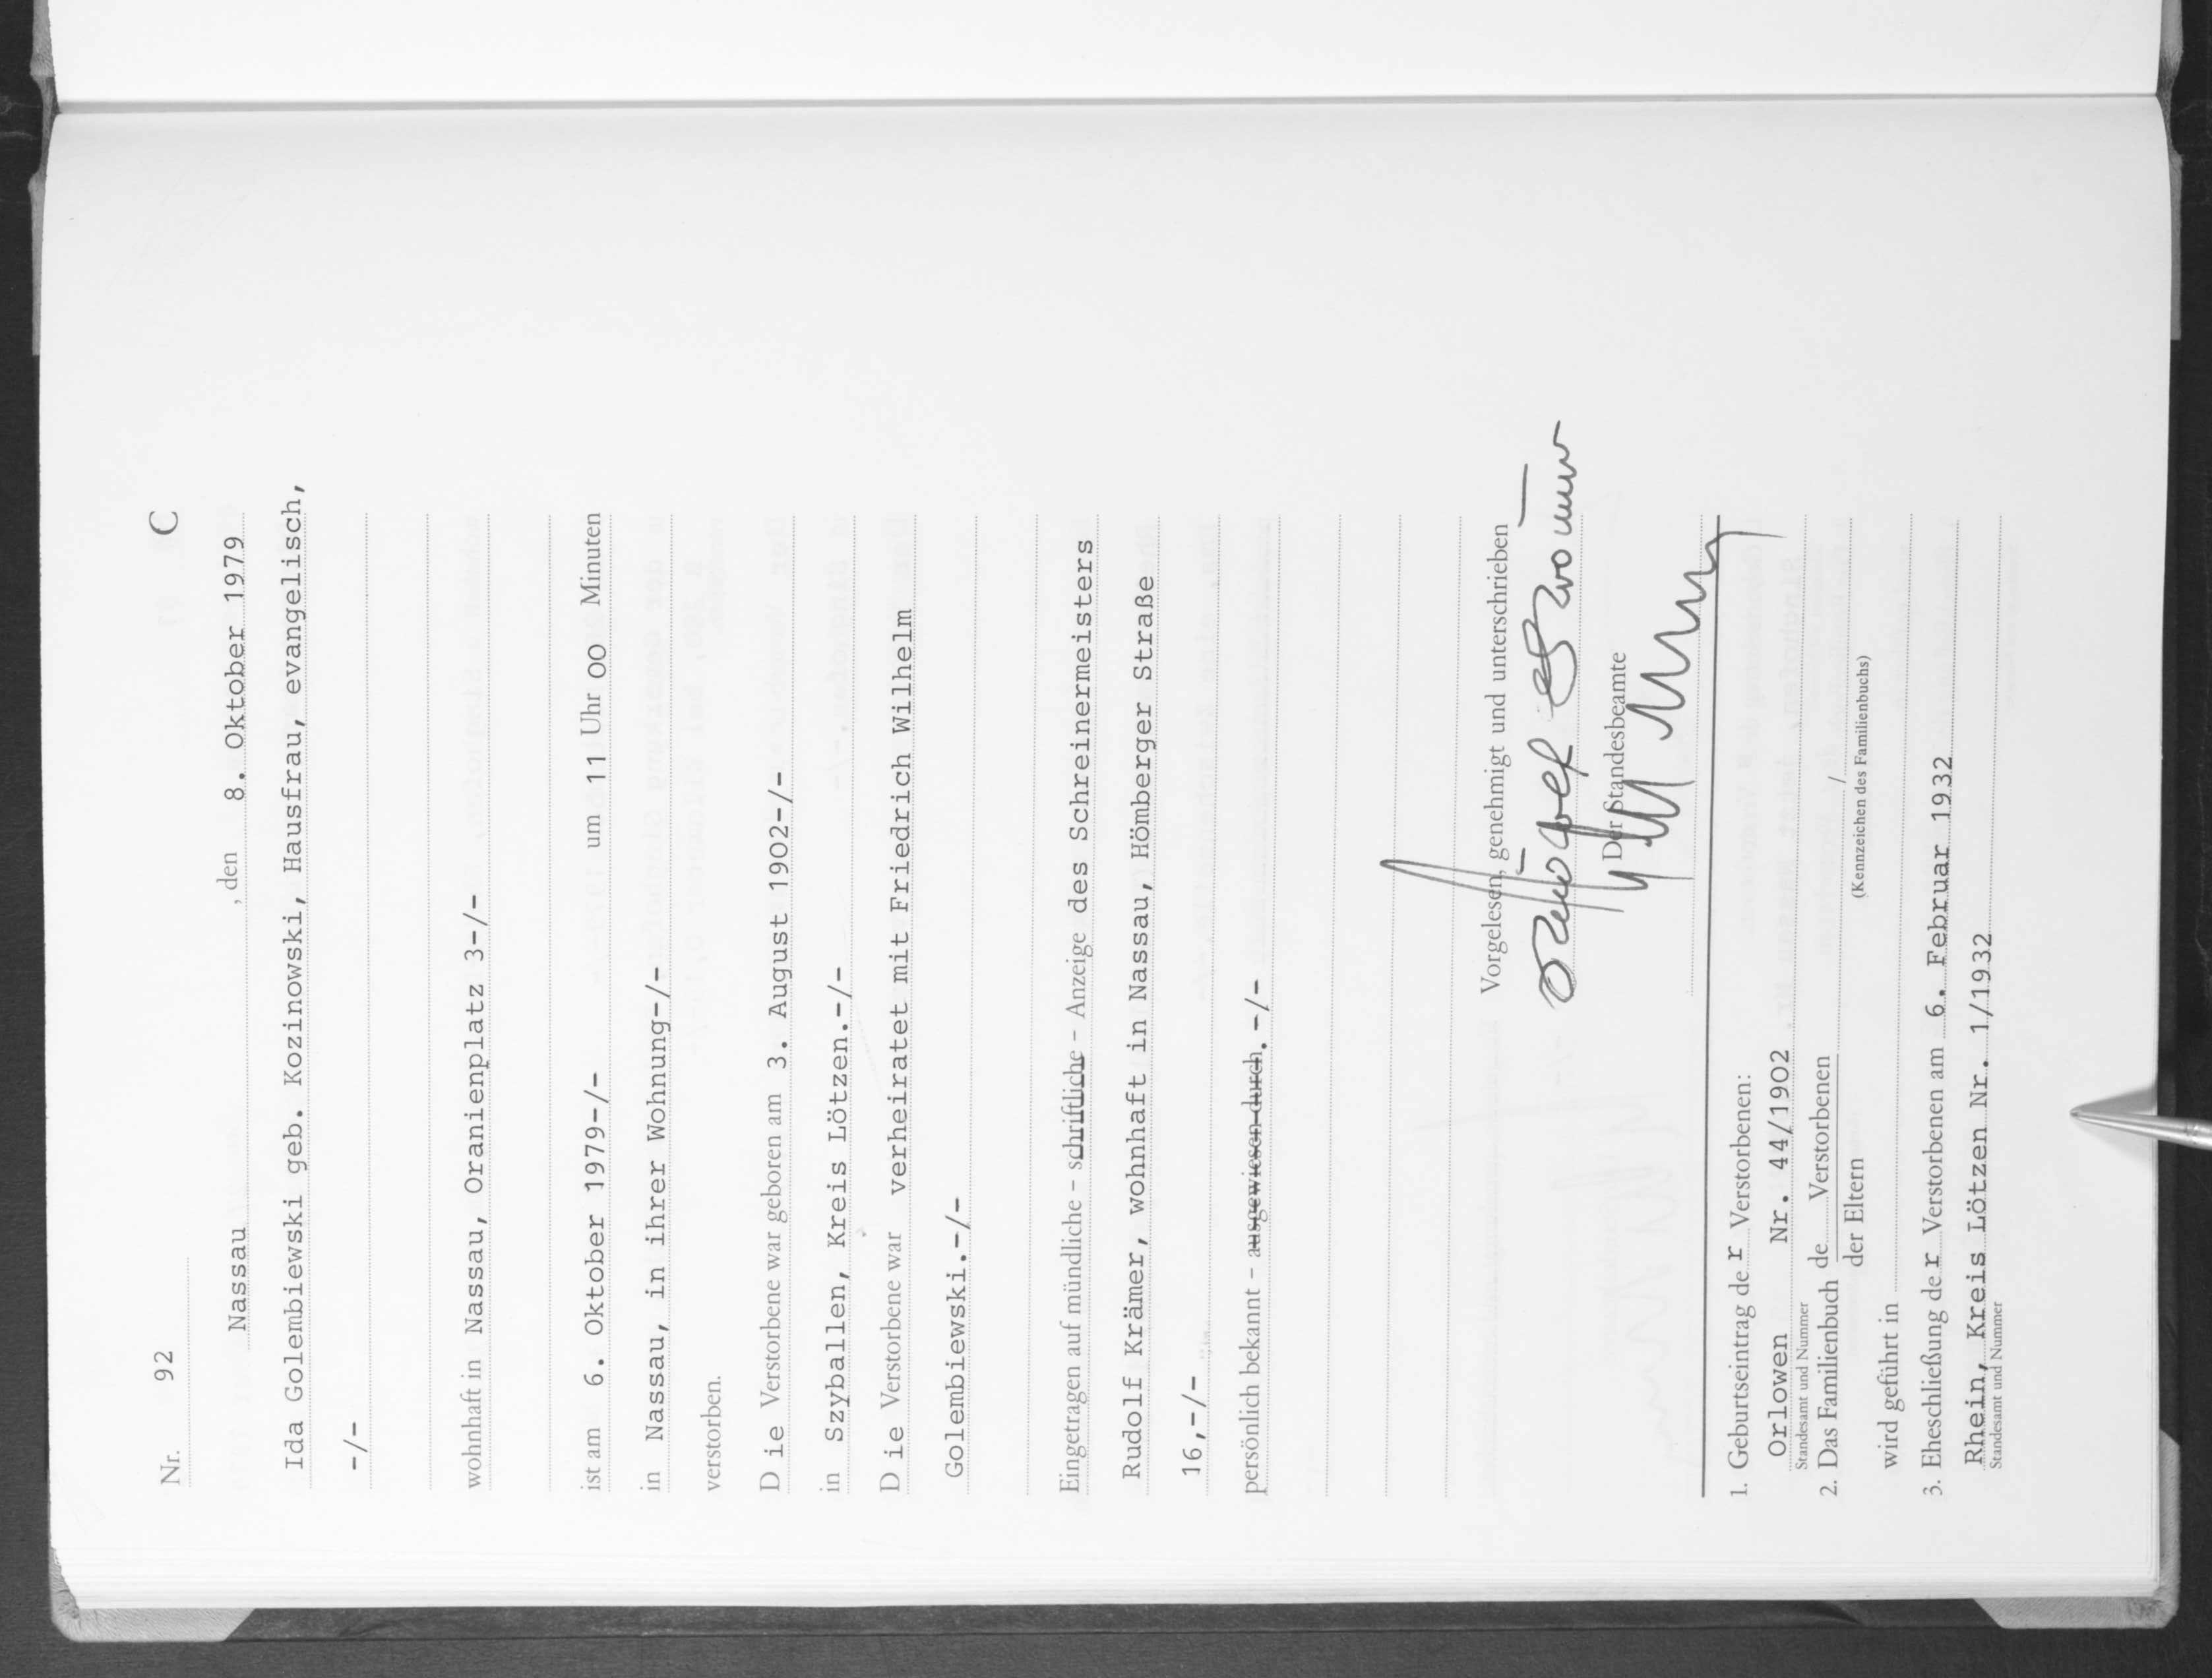 Nr. 92 C
Nassau, den 8. Oktober 1979
Ida Golembiewski geb. Kozinowski, Hausfrau, evangelisch,
-/-
wohnhaft in Nassau, Oranienplatz 3-/-
ist am 6. Oktober 1979-/- um 11 Uhr 00 Minuten
in Nassau, in ihrer Wohnung-/-
verstorben.
D ie Verstorbene war geboren am 3. August 1902-/-
in Szyballen, Kreis Lötzen.-/-
D ie Verstorbene war verheiratet mit Friedrich Wilhelm
Golembiewski.-/-
Eingetragen auf mündliche - schriftliche - Anzeige des Schreinermeisters
Rudolf Krämer, wohnhaft in Nassau, Hömberger Straße
16,-/-
persönlich bekannt - ausgewiesen durch. -/-
Vorgelesen, genehmigt und unterschrieben
Der Standesbeamte
1. Geburtseintrag de r Verstorbenen:
Orlowen Nr. 44/1902
Standesamt und Nummer
2. Das Familienbuch de Verstorbenen /
der Eltern (Kennzeichen des Familienbuchs)
wird geführt in
3. Eheschließung de r Verstorbenen am 6. Februar 1932
Rhein, Kreis Lötzen Nr. 1/1932
Standesamt und Nummer